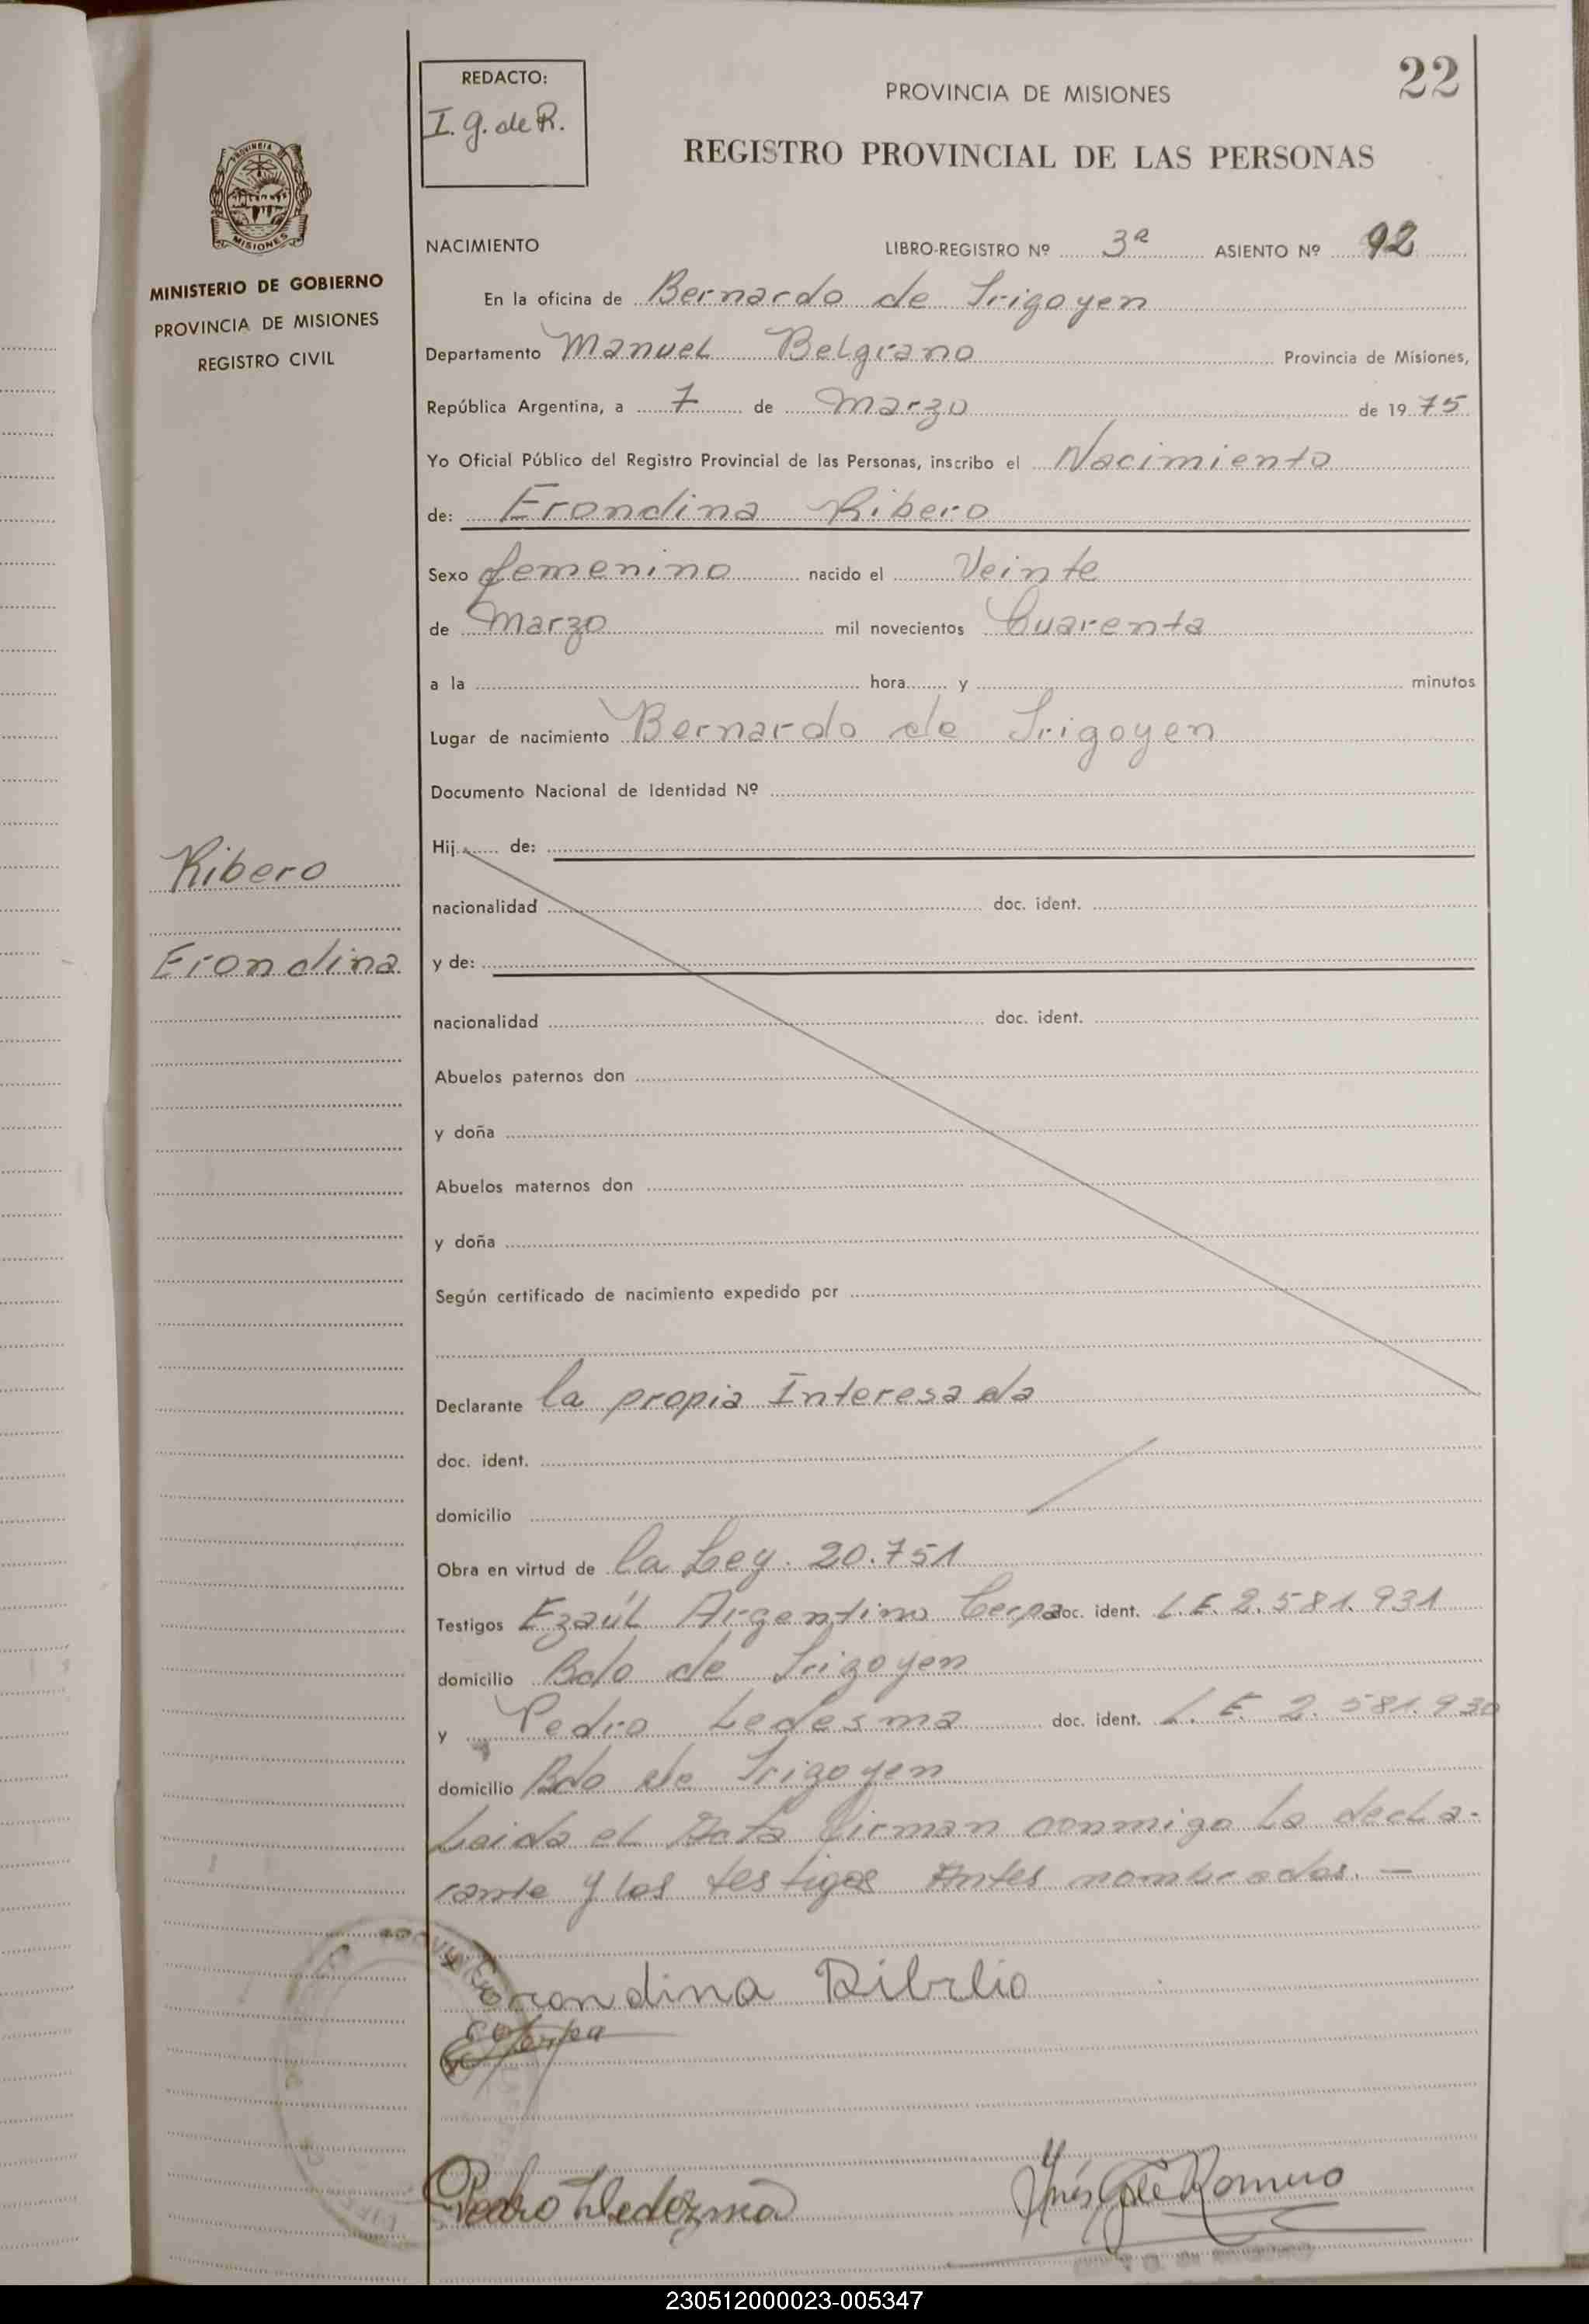 22
REDACTO:
I. g. de R.
PROVINCIA DE MISIONES
REGISTRO PROVINCIAL DE LAS PERSONAS
PROVINCIA
MISIONES
MINISTERIO DE GOBIERNO
PROVINCIA DE MISIONES
REGISTRO CIVIL
NACIMIENTO LIBRO-REGISTRO Nº 3ª ASIENTO Nº 92
En la oficina de Bernardo de Irigoyen
Departamento Manuel Belgrano Provincia de Misiones,
República Argentina, a 7 de Marzo de 1975
Yo Oficial Público del Registro Provincial de las Personas, inscribo el Nacimiento
de: Erondina Ribero
Sexo femenino nacido el Veinte
de Marzo mil novecientos Cuarenta
a la hora y minutos
Lugar de nacimiento Bernardo de Irigoyen
Documento Nacional de Identidad Nº
Hij de:
Ribero
nacionalidad doc. ident.
Erondina
y de:
nacionalidad doc. ident.
Abuelos paternos don
y doña
Abuelos maternos don
y doña
Según certificado de nacimiento expedido por
Declarante la propia Interesada
doc. ident.
domicilio
Obra en virtud de la Ley. 20.751
Testigos Ezaúl Argentino Cerpa doc. ident. L.E. 2.581.931
domicilio Bdo de Irigoyen
y Pedro Ledesma doc. ident. L.E. 2.581.930
domicilio Bdo de Irigoyen
Leida el Acta firman conmigo la decla-
rante y los testigos Antes nombrados. —
Erondina Ribelio
Pedro Lledezma
Inés Romero
230512000023-005347